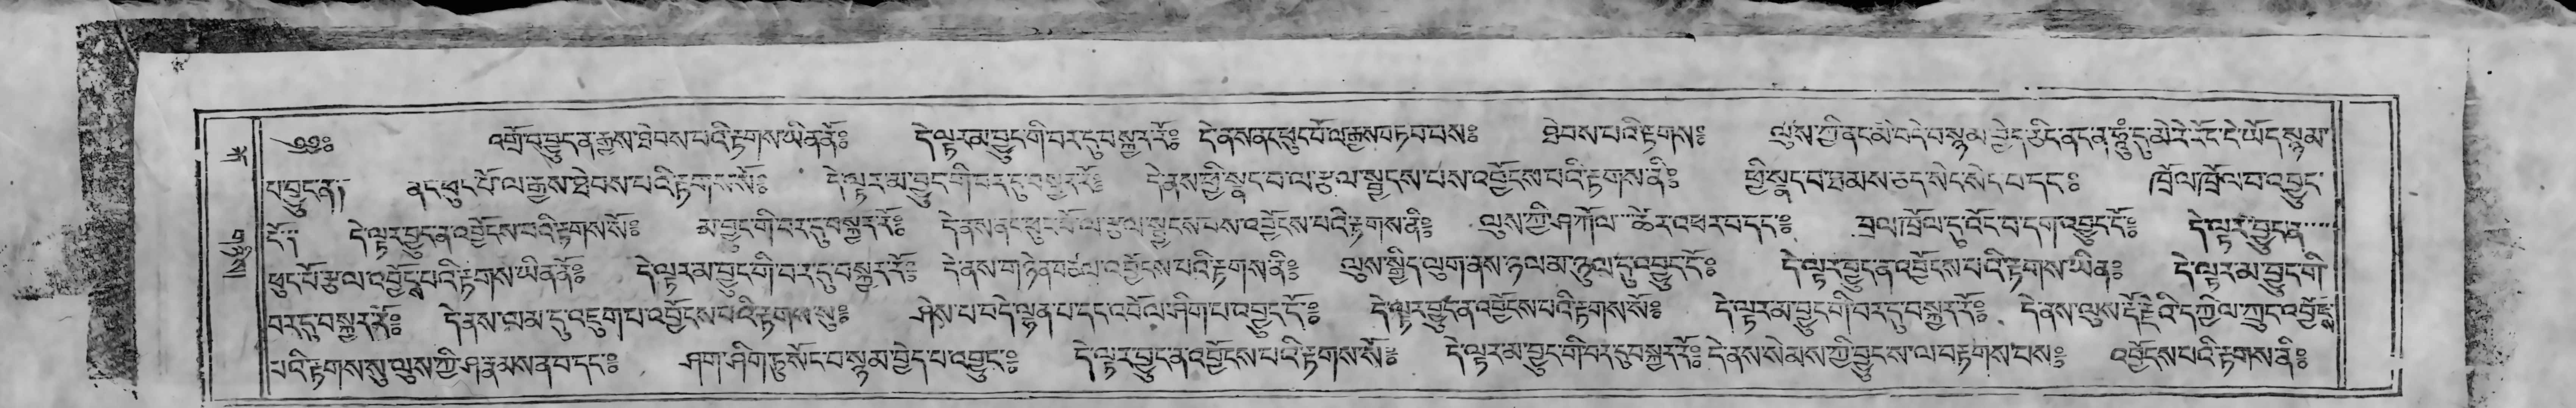 ༄༅༔ འགྲོ་བ་བྱུང་ན་རྒྱས་ཐེབས་པའི་རྟགས་ཡིན་ནོ༔ དེ་ལྟར་མ་བྱུང་གི་བར་དུ་བསྐྱར་རོ༔ དེ་ནས་ནང་ཕུང་པོ་ལ་རྒྱས་བཏབ་པས༔ ཐེབས་པའི་རྟགས༔ ལུས་ཀྱི་ནང་མེ་བདེ་བ་སྙམ་བྱེད་ཅིང་ནད་ན་ཧཱུྃ་དུ་མེ་རེ་རོང་ངེ་ཡོད་སྙམ་
པ་བྱུང་ན༔ ནང་ཕུང་པོ་ལ་རྒྱས་ཐེབས་པའི་རྟགས་སོ༔ དེ་ལྟར་མ་བྱུང་གི་བར་དུ་བསྐྱར་རོ༔ དེ་ནས་ཕྱི་སྣང་བ་ལ་རྩལ་སྦྱངས་པས་འབྱོངས་པའི་རྟགས་ནི༔ ཕྱི་སྣང་བ་ཐམས་ཅད་སེང་སེང་བ་དང༔ ཁྲོལ་ཁྲོལ་བ་འབྱུང་
ངོ༔ དེ་ལྟར་བྱུང་ན་འབྱོངས་པའི་རྟགས་སོ༔ མ་བྱུང་གི་བར་དུ་བསྐྱར་རོ༔ དེ་ནས་ནང་ཕུང་པོ་ལ་རྩལ་སྦྱངས་པས་འབྱོངས་པའི་རྟགས་ནི༔ ལུས་ཀྱི་ཤ་ཀོལ་ ཆེར་འཕར་བ་དང༔ ཁྲོལ་དུ་འོང་བ་དག་འབྱུང་ངོ༔ དེ་ལྟར་བྱུང་ན་
ཕུང་པོ་རྩལ་འབྱོངས་པའི་རྟགས་ཡིན་ནོ༔ དེ་ལྟར་མ་བྱུང་གི་བར་དུ་བསྐྱར་རོ༔ དེ་ནས་ག་ཉེན་བཙལ་འབྱོངས་པའི་རྟགས་ནི༔ ལུས་སྒྱིད་ལུག་ནས་ཉལ་མ་ཉུལ་དུ་འབྱུང་ངོ༔ དེ་ལྟར་བྱུང་ན་འབྱོངས་པའི་རྟགས་ཡིན༔ དེ་ལྟར་མ་བྱུང་གི་
བར་དུ་བསྐྱར་རོ༔ དེ་ནས་ལམ་དུ་འཇུག་པ་འབྱོངས་པའི་རྟགས་སུ༔ ཤེས་པ་བདེ་ལྷན་པ་དང་འབོལ་ཤིག་པ་འབྱུང་ངོ༔ དེ་ལྟར་བྱུང་ན་འབྱོངས་པའི་རྟགས་སོ༔ དེ་ལྟར་མ་བྱུང་གི་བར་དུ་བསྐྱར་རོ༔ དེ་ནས་ལུས་རྡོ་རྗེའི་དཀྱིལ་ཀྲུང་འབྱོངས་
པའི་རྟགས་སུ་ལུས་ཀྱི་ཤ་རྣམས་ན་བ་དང༔ ཤག་ཤིག་ཏུ་སོང་བ་སྙམ་བྱེད་པ་འབྱུང༔ དེ་ལྟར་བྱུང་ན་འབྱོངས་པའི་རྟགས་སོ༔ དེ་ལྟར་མ་བྱུང་གི་བར་དུ་བསྐྱར་རོ༔ དེ་ནས་སེམས་ཀྱི་བྱུང་ས་ལ་བརྟགས་པས༔ འབྱོངས་པའི་རྟགས་ནི༔